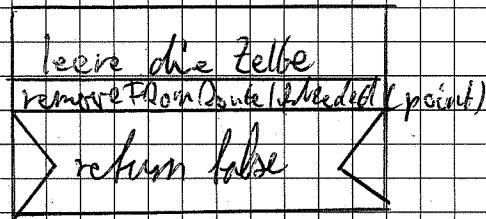 leere die Zelle
removeFromRouteIfNeeded(point)
return false